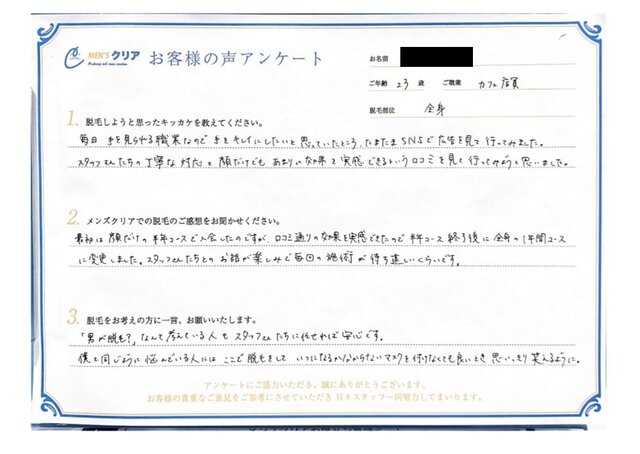 MEN'S クリア お客様の声アンケート
お名前
ご年齢 23 歳 ご職業 カフェ店員
脱毛部位 全身
1. 脱毛しようと思ったキッカケを教えてください。
毎日 手を見られる職業なので 手をキレイにしたいと思っていたところ、たまたまSNSで広告を見て行ってみました。
スタッフさんたちの丁寧な対応と顔だけでもあまりに効果を実感できるという口コミを見て行ってみようと思いました。
2. メンズクリアでの脱毛のご感想をお聞かせください。
最初は顔だけの半年コースで入会したのですが、口コミ通りの効果を実感できたので半年コース終了後に全身の1年間コース
に変更しました。スタッフさんたちとのお話が楽しみで毎回の施術が待ち遠しいくらいです。
3. 脱毛をお考えの方に一言、お願いいたします。
「男が脱毛?」なんて考えている人もスタッフさんたちに任せれば安心です。
僕と同じように悩んでいる人にはここで脱毛をして いつになるかわからないマスクを付けなくても良いとき思いっきり笑えるように。
アンケートにご協力いただき、誠にありがとうございます。
お客様の貴重なご意見をご参考にさせていただき 日々スタッフ一同努力してまいります。